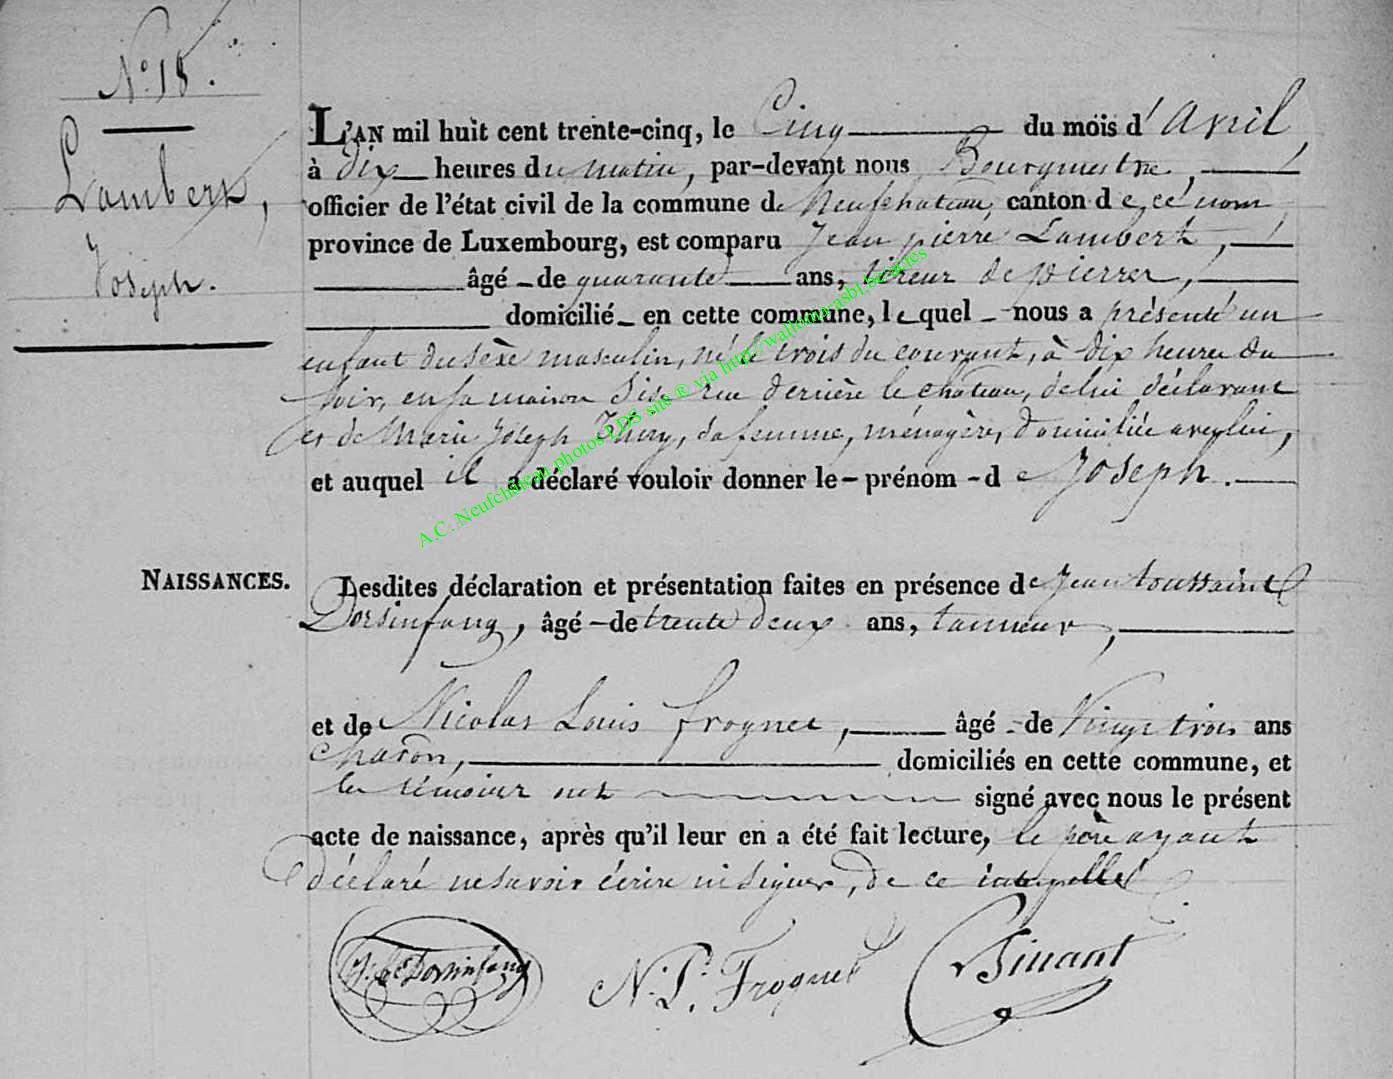 N° 18.
Lambert,
Joseph.
L'AN mil huit cent trente-cinq, le Cinq du mois d'avril,
à dix heures du matin, par-devant nous Bourgmestre,
officier de l'état civil de la commune de Neufchateau, canton de ce nom,
province de Luxembourg, est comparu Jean pierre Lambert,
âgé de quarante ans, tireur de pierres,
domicilié en cette commune, lequel nous a présenté un
enfant du sèxe masculin, né le trois du courant, à dix heures du
soir, en sa maison sise rue derrière le château, de lui déclarant
et de Marie Joseph Thiry, sa femme, ménagère, domiciliée avec lui,
et auquel il a déclaré vouloir donner le prénom de Joseph.
NAISSANCES.
Lesdites déclaration et présentation faites en présence de Jean toussaint
Dorsinfang, âgé de trente deux ans, tanneur,
et de Nicolas Louis frognet, âgé de Vingt trois ans
charon, domiciliés en cette commune, et
les témoins ont signé avec nous le présent
acte de naissance, après qu'il leur en a été fait lecture, le père ayant
déclaré ne savoir écrire ni signer, de ce interpellé
J. Dorsinfang
N. Frognet
Binant
A.C. Neufchâteau photos LDS site ® via http://wallonia.rasbt.be/actes